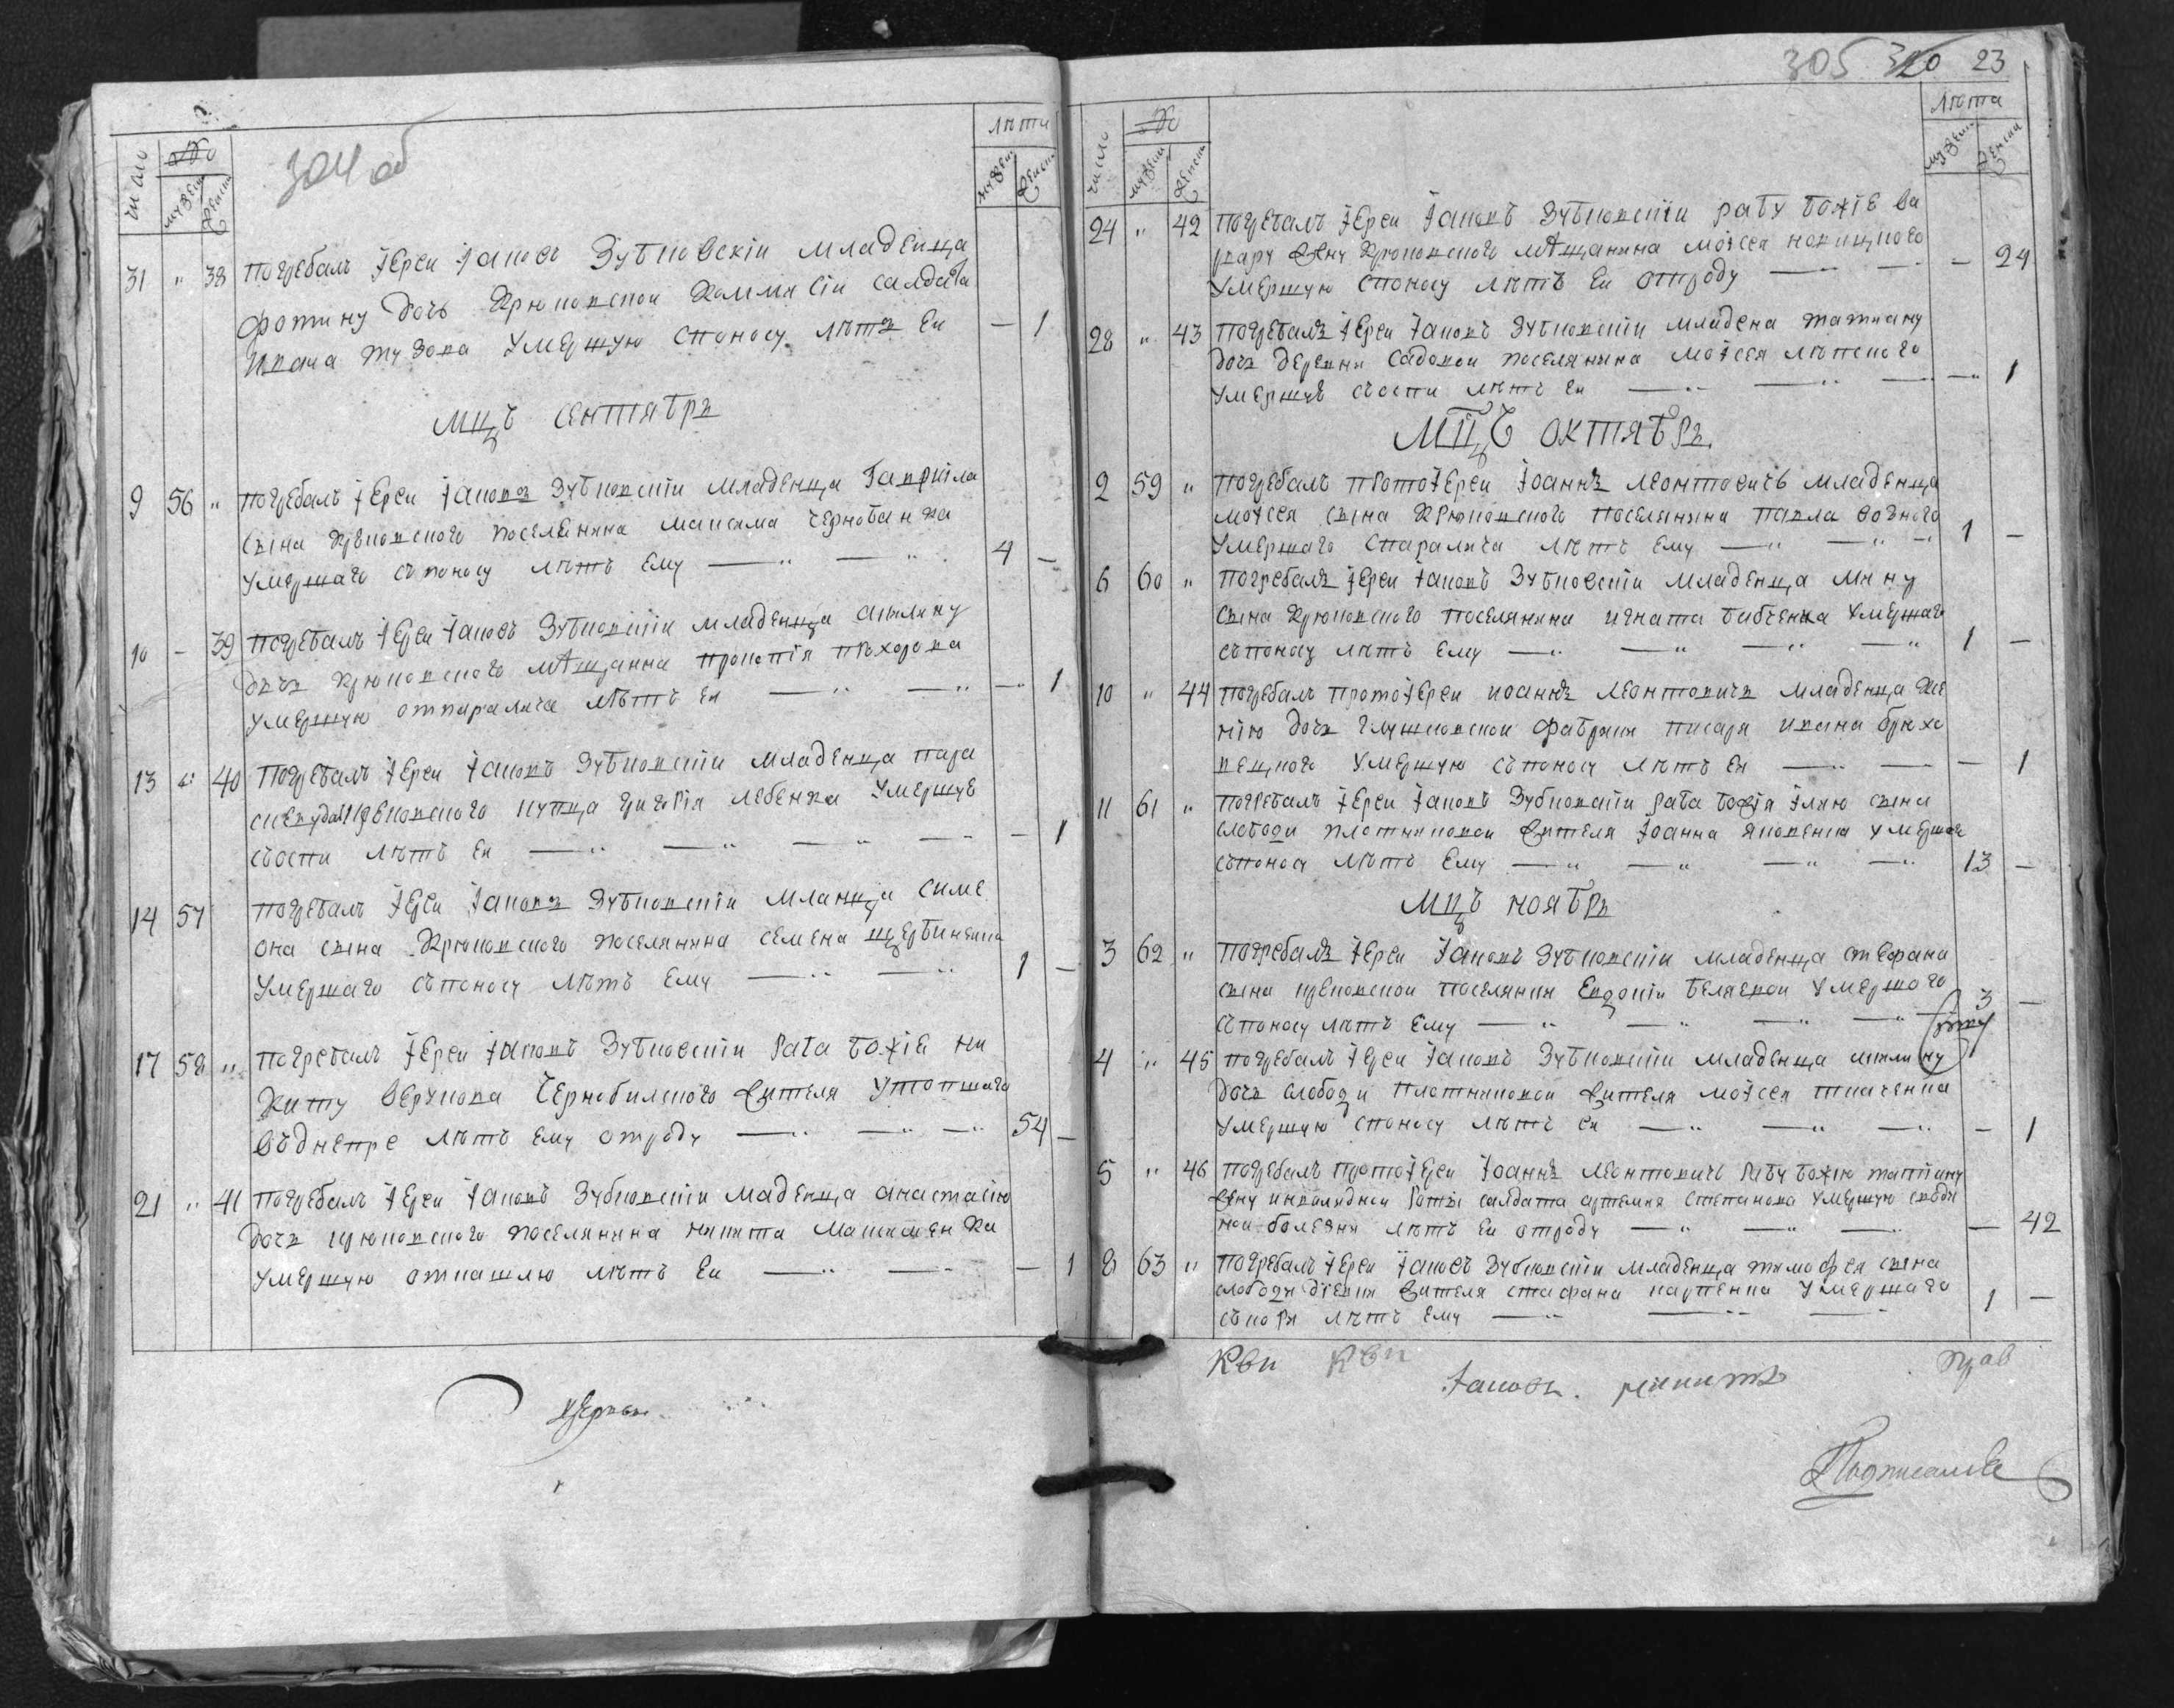 304 об
число № лѣта
мужеск женск мужеск женск
31 " 38 погребалъ їереи їаковъ Зубковскіи младенца
фотину дочь Крюковскои Коммисіи салдата
Ивана тузова умершую споносу лѣтъ еи — 1
мцъ сентябрь
9 56 " погребалъ їереи їаковъ Зубковскіи младенца Гавріила
сына крюковского поселянина максима чернобанка
умершаго съпоносу лѣтъ ему — " — " 4 —
10 — 39 погребалъ їереи їаковъ Зубковскіи младенца акилину
дочь крюковского мѣщанина прокопія прохорова
умершую отпаралича лѣтъ еи — " — " — " 1
13 " 40 погребалъ їереи їаковъ Зубковскіи младенца пара
скеву дочь крюковского купца григорія лебенка умершую
съоспи лѣтъ еи — " — " — " — — 1
14 57 погребалъ їереи їаковъ Зубковскіи младенца симе
она сына крюковского поселянина семена щербинкина
умершаго съпоносу лѣтъ ему — " — " 1 —
17 58 " погребалъ їереи їаковъ Зубковскіи раба божіе ни
киту верхнова чернобилского жителя утопшаго
въднепре лѣтъ ему отроду — " — " — " 54 —
21 " 41 погребалъ їереи їаковъ Зубковскіи маденца анастасію
дочь крюковского поселянина никита максименка
умершую откашлю лѣтъ еи — " — " — 1
305 23
число № лѣта
мужеск женск мужеск женск
24 " 42 погребалъ їереи їаковъ Зубковскіи рабу божіе ва
рвару жену крюковского мѣщанина моѵсея
умершую споносу лѣтъ еи отроду — " — " — 24
28 " 43 погребалъ їереи їаковъ Зубковскіи младена татиану
дочь деревни садовои поселянина моѵсея
умершую съоспи лѣтъ еи — " — " — " 1
мцъ октябрь.
2 59 " погребалъ протоїереи їоаннъ леонтовичъ младенца
моѵсея сына крюковского поселянина павла
умершаго спаралича лѣтъ ему — " — " — 1 —
6 60 " погребалъ їереи їаковъ Зубковскіи младенца мину
сына крюковского поселянина игната бабченка умершаго
съпоносу лѣтъ ему — " — " — " — " 1 —
10 " 44 погребалъ протоїереи иоаннъ леонтовичъ младенца
нію дочь глушковскои фабрики писаря ивана брюхо
вецкого умершую съпоносу лѣтъ еи — " — — 1
11 61 " погребалъ їереи їаковъ Зубковскіи раба божія їлию сына
слободи плотниковои жителя їоанна яковенка умершаго
съпоносу лѣтъ ему — " — " — " — " 13 —
мцъ ноябрь
3 62 " погребалъ їереи їаковъ Зубковскіи младенца стефана
сына крюковскои поселянки евдокіи беляевои умершого
съпоносу лѣтъ ему — " — " — " — " 3 —
4 " 45 погребалъ їереи їаковъ Зубковскіи младенца акилину
дочь слободи плотниковои жителя моѵсея ткаченка
умершую споносу лѣтъ еи — " — " — " — 1
5 " 46 погребалъ протоїереи їоаннъ леонтовичъ рабу божію татиану
жену инвалиднои роты салдата артемия степанова умершую сводя
нои болезни лѣтъ еи отроду — " — " — " — 42
8 63 " погребалъ їереи їаковъ Зубковскіи младенца тимофея сына
слободи жителя стефана карпенка умершаго
съкори лѣтъ ему — " — " — " 1 —
їаковъ.